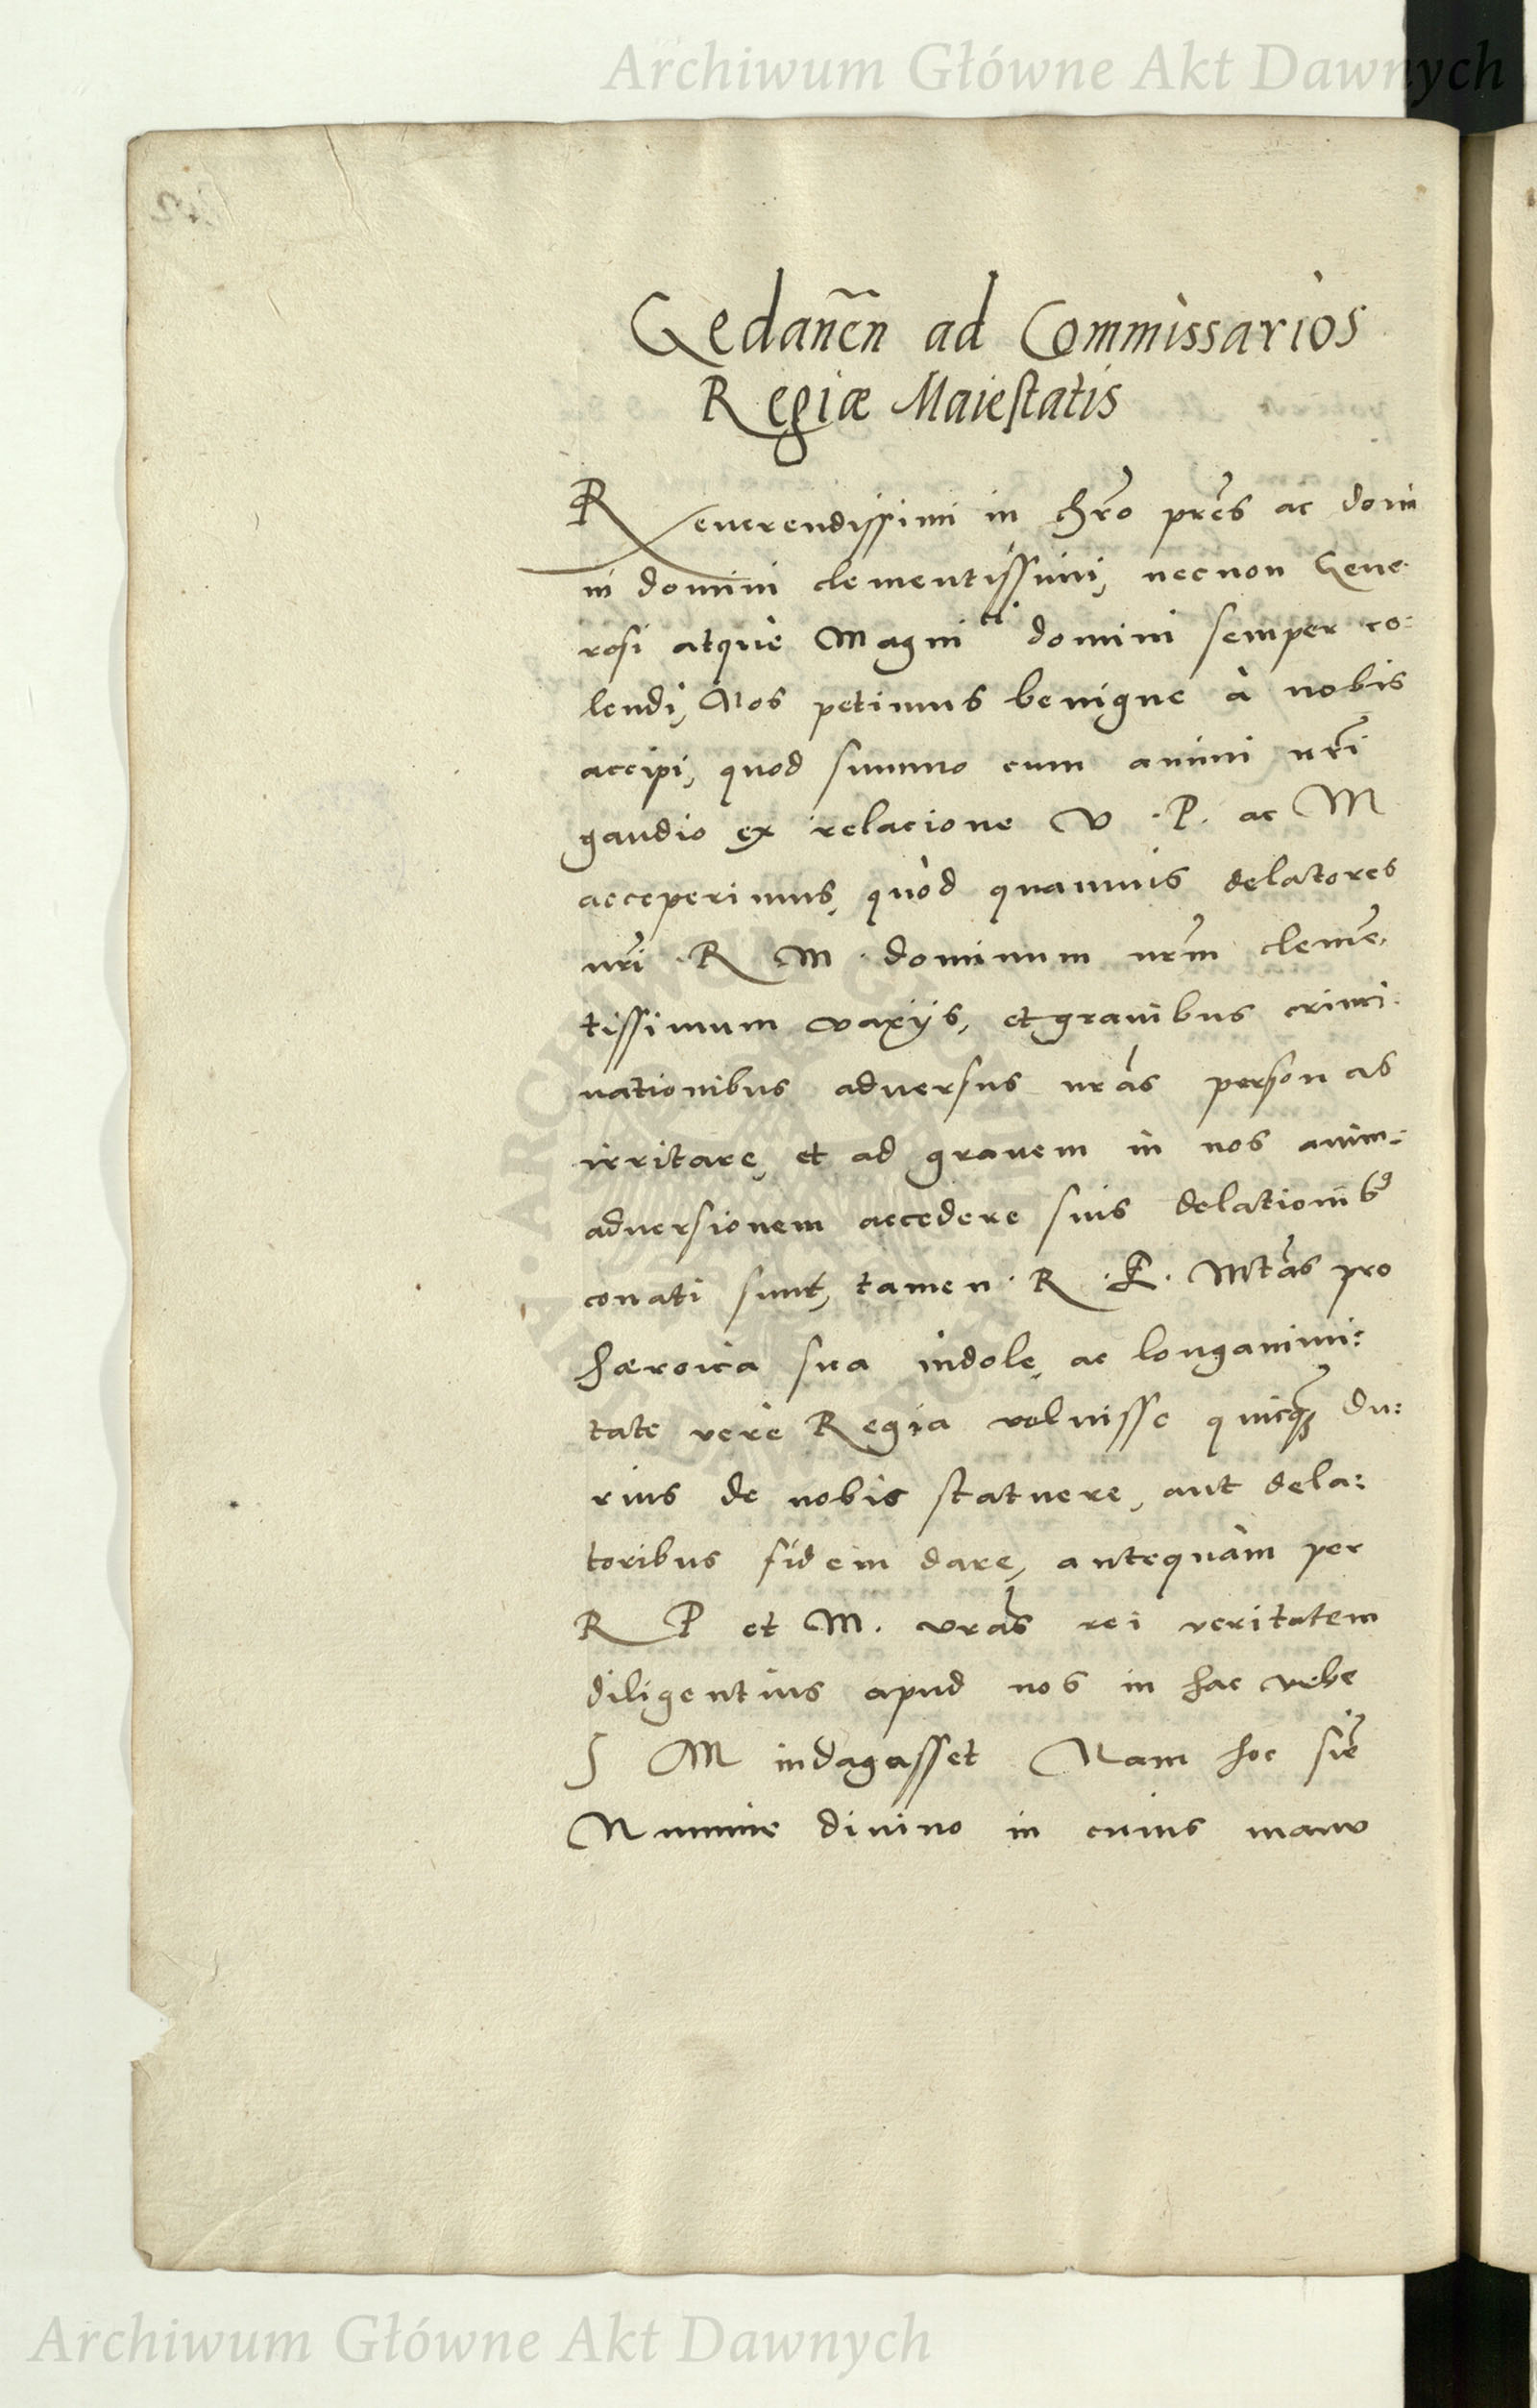 Archiwum Główne Akt Dawnych
Gedanen̄ ad Commissarios
Regiæ Maiestatis
Reuerendissimi in chrō prēs ac domi
ni domini clementissimi, necnon Gene-
rosi atque Magniᶜⁱ domini semper co:
lendi, Nos petimus benigne à nobis
accipi, quod summo cum animi nrī
gaudio ex relacione V. P. ac M
acceperimus, quòd quamuis delatores
nrī R M. dominum nrm̄ clemē-
tissimum varijs, et grauibus crimi-
nationibus aduersus nrās personas
irritare, et ad grauem in nos anim:
aduersionem accedere suis delationibꝰ
conati sunt, tamen R. E. Mtās pro
hæroica sua indole, ac longanimi:
tate verè Regia voluisse quicqȝ du:
rius de nobis statuere, aut dela:
toribus fidem dare, antequàm per
R P et M. vrās rei veritatem
diligentius apud nos in hac vrbe
S M indagasset Nam hoc siē
Numine diuino in cuius manu
Archiwum Główne Akt Dawnych